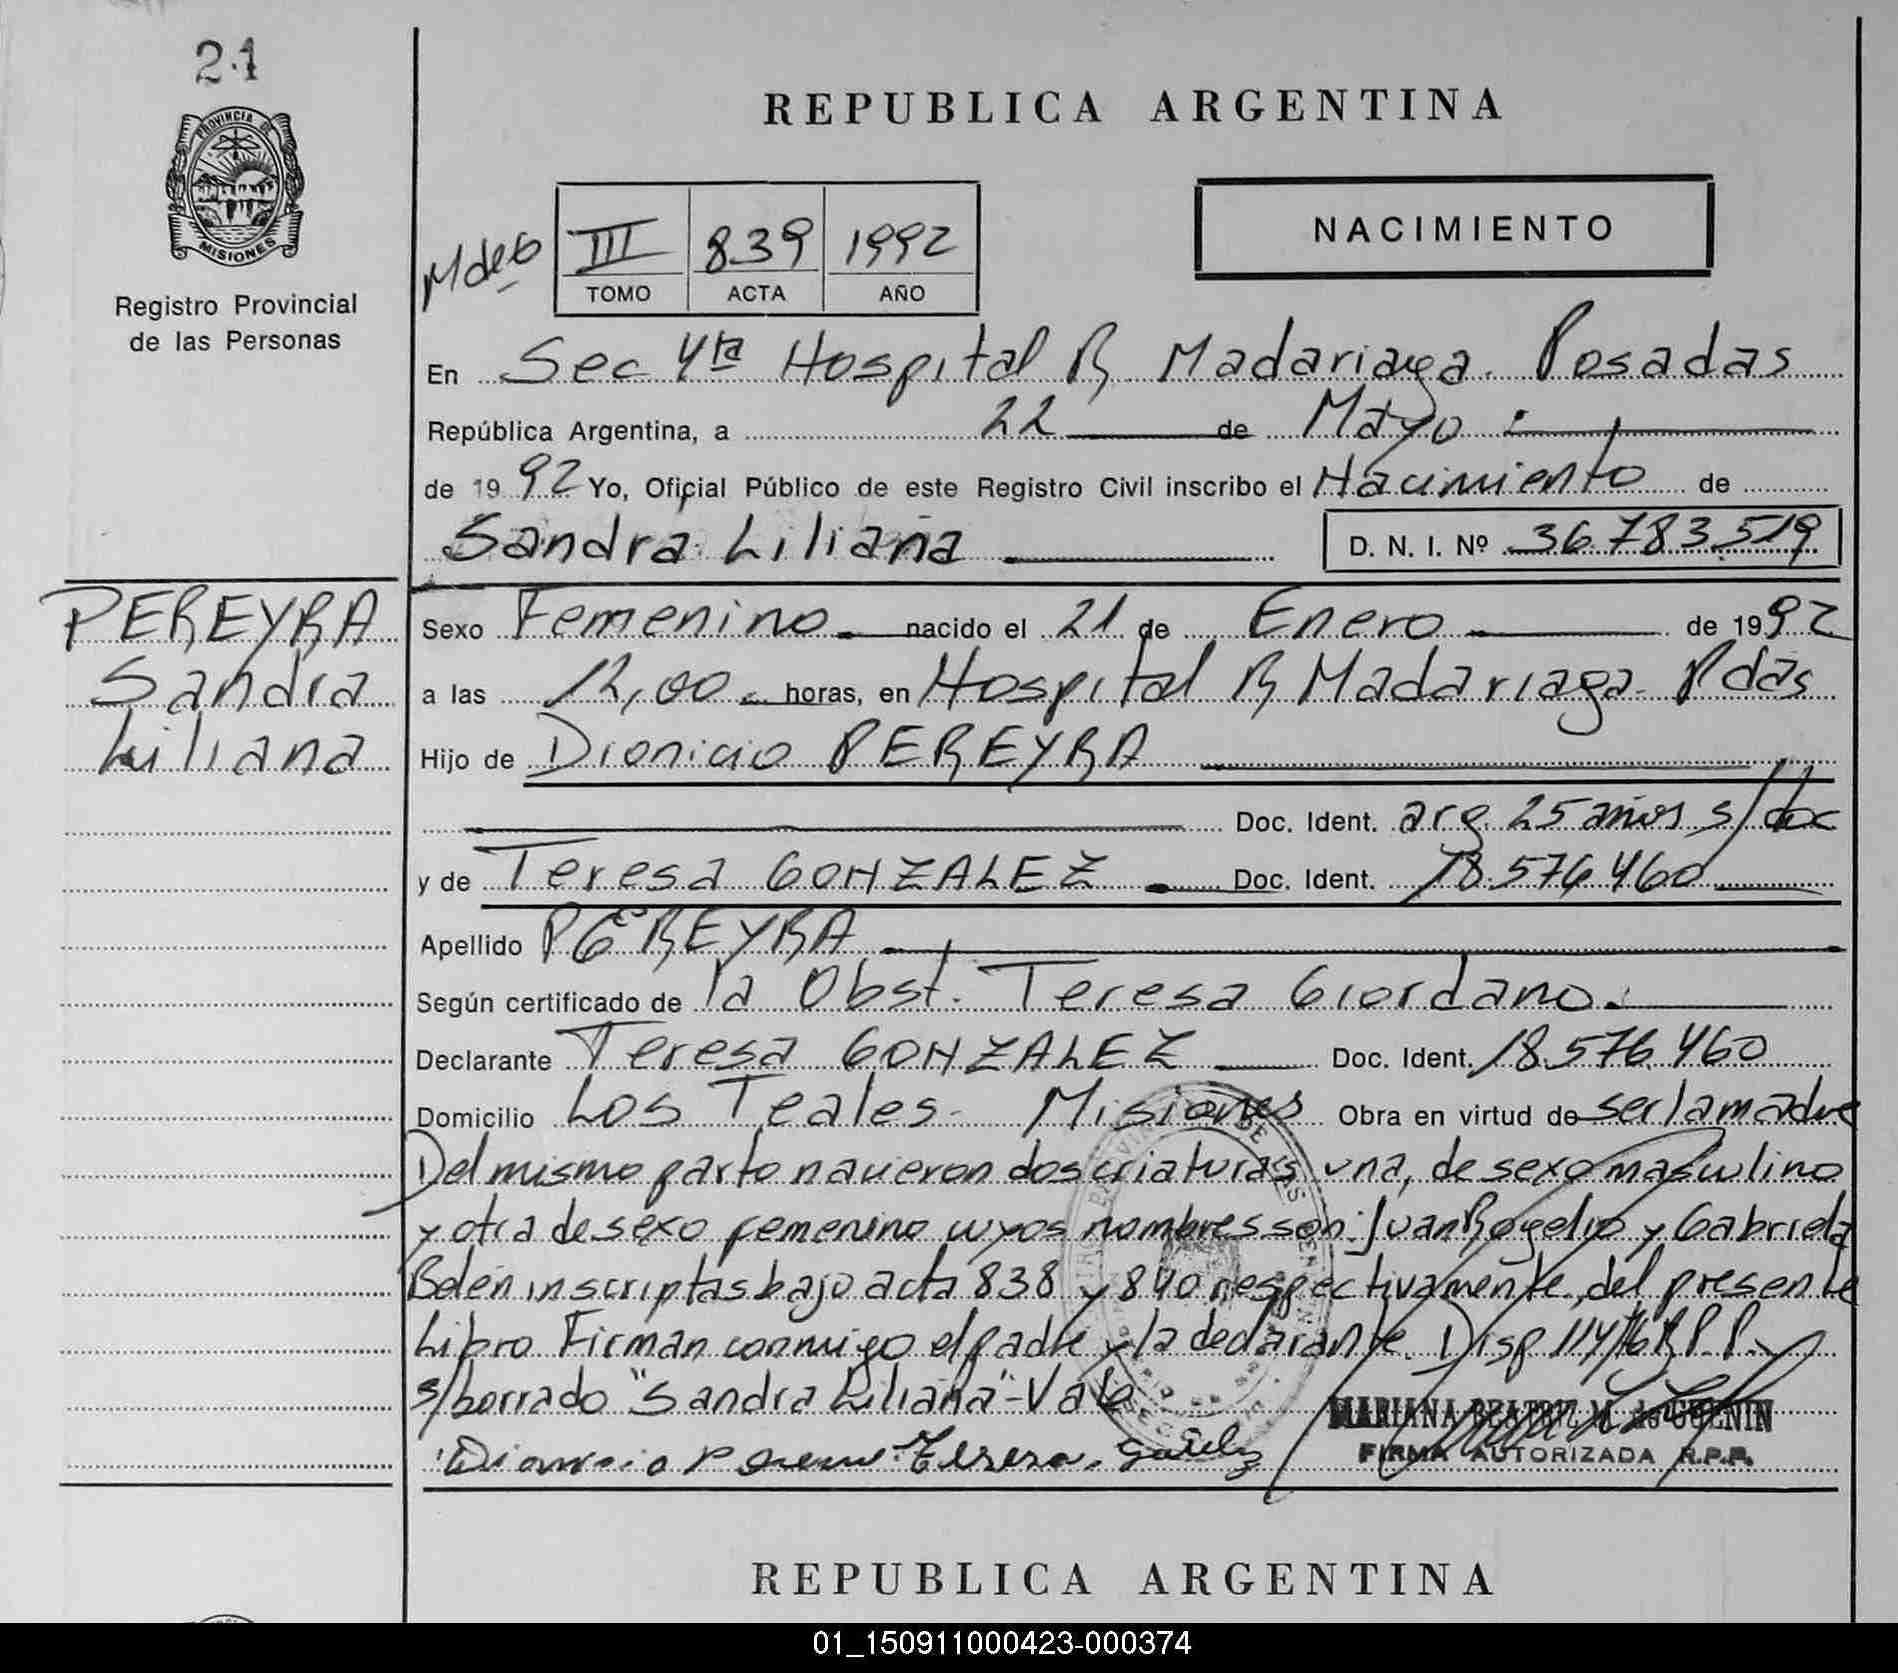 21
PROVINCIA DE
MISIONES
Registro Provincial
de las Personas
REPUBLICA ARGENTINA
NACIMIENTO
III 839 1992
TOMO ACTA AÑO
En Sec 4ta Hospital R Madariaga. Posadas
República Argentina, a 22 de Mayo
de 1992 Yo, Oficial Público de este Registro Civil inscribo el Nacimiento de
Sandra Liliana D. N. I. Nº 36.783.519
PEREYRA
Sandra
Liliana
Sexo Femenino nacido el 21 de Enero de 1992
a las 12,00 horas, en Hospital R Madariaga. Pdas
Hijo de Dionicio PEREYRA
Doc. Ident. arg. 25 años s/doc
y de Teresa GONZALEZ Doc. Ident. 18.576.460
Apellido PEREYRA
Según certificado de la Obst. Teresa Giordano.
Declarante Teresa GONZALEZ Doc. Ident. 18.576.460
Domicilio Los Teales. Misiones Obra en virtud de ser la madre
Del mismo parto nacieron dos criaturas, una, de sexo masculino
y otra de sexo femenino cuyos nombres son: Juan Rogelio y Gabriela
Belén inscriptas bajo acta 838 y 840 respectivamente, del presente
Libro Firman conmigo el padre y la declarante. Disp 114/76 R.P.P.
s/borrado "Sandra Liliana" - Vale
MARIANA BEATRIZ M. de GUENIN
FIRMA AUTORIZADA R.P.P.
REPUBLICA ARGENTINA
01_150911000423-000374